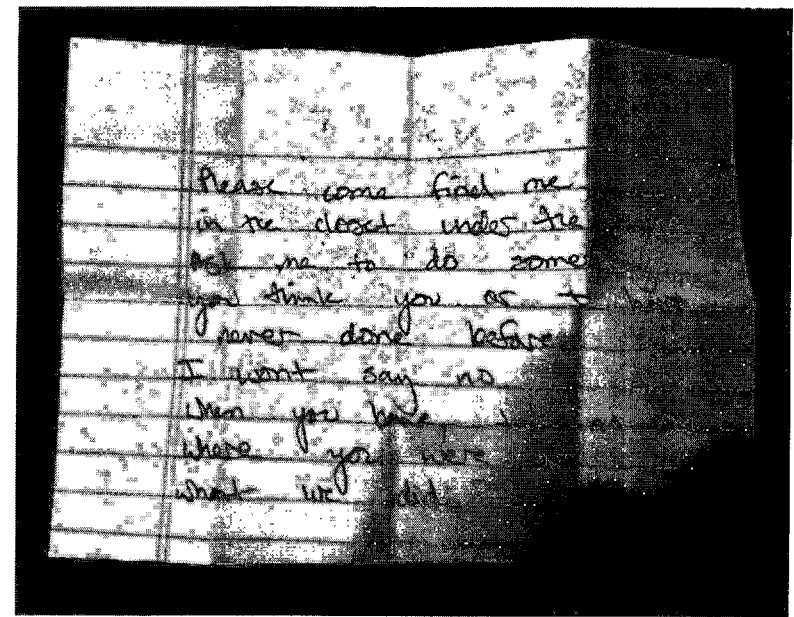 Please come find me
in the closet under the
Ask me to do some
you think you or I have
never done before
I wont say no
when you have
where you were
what we did